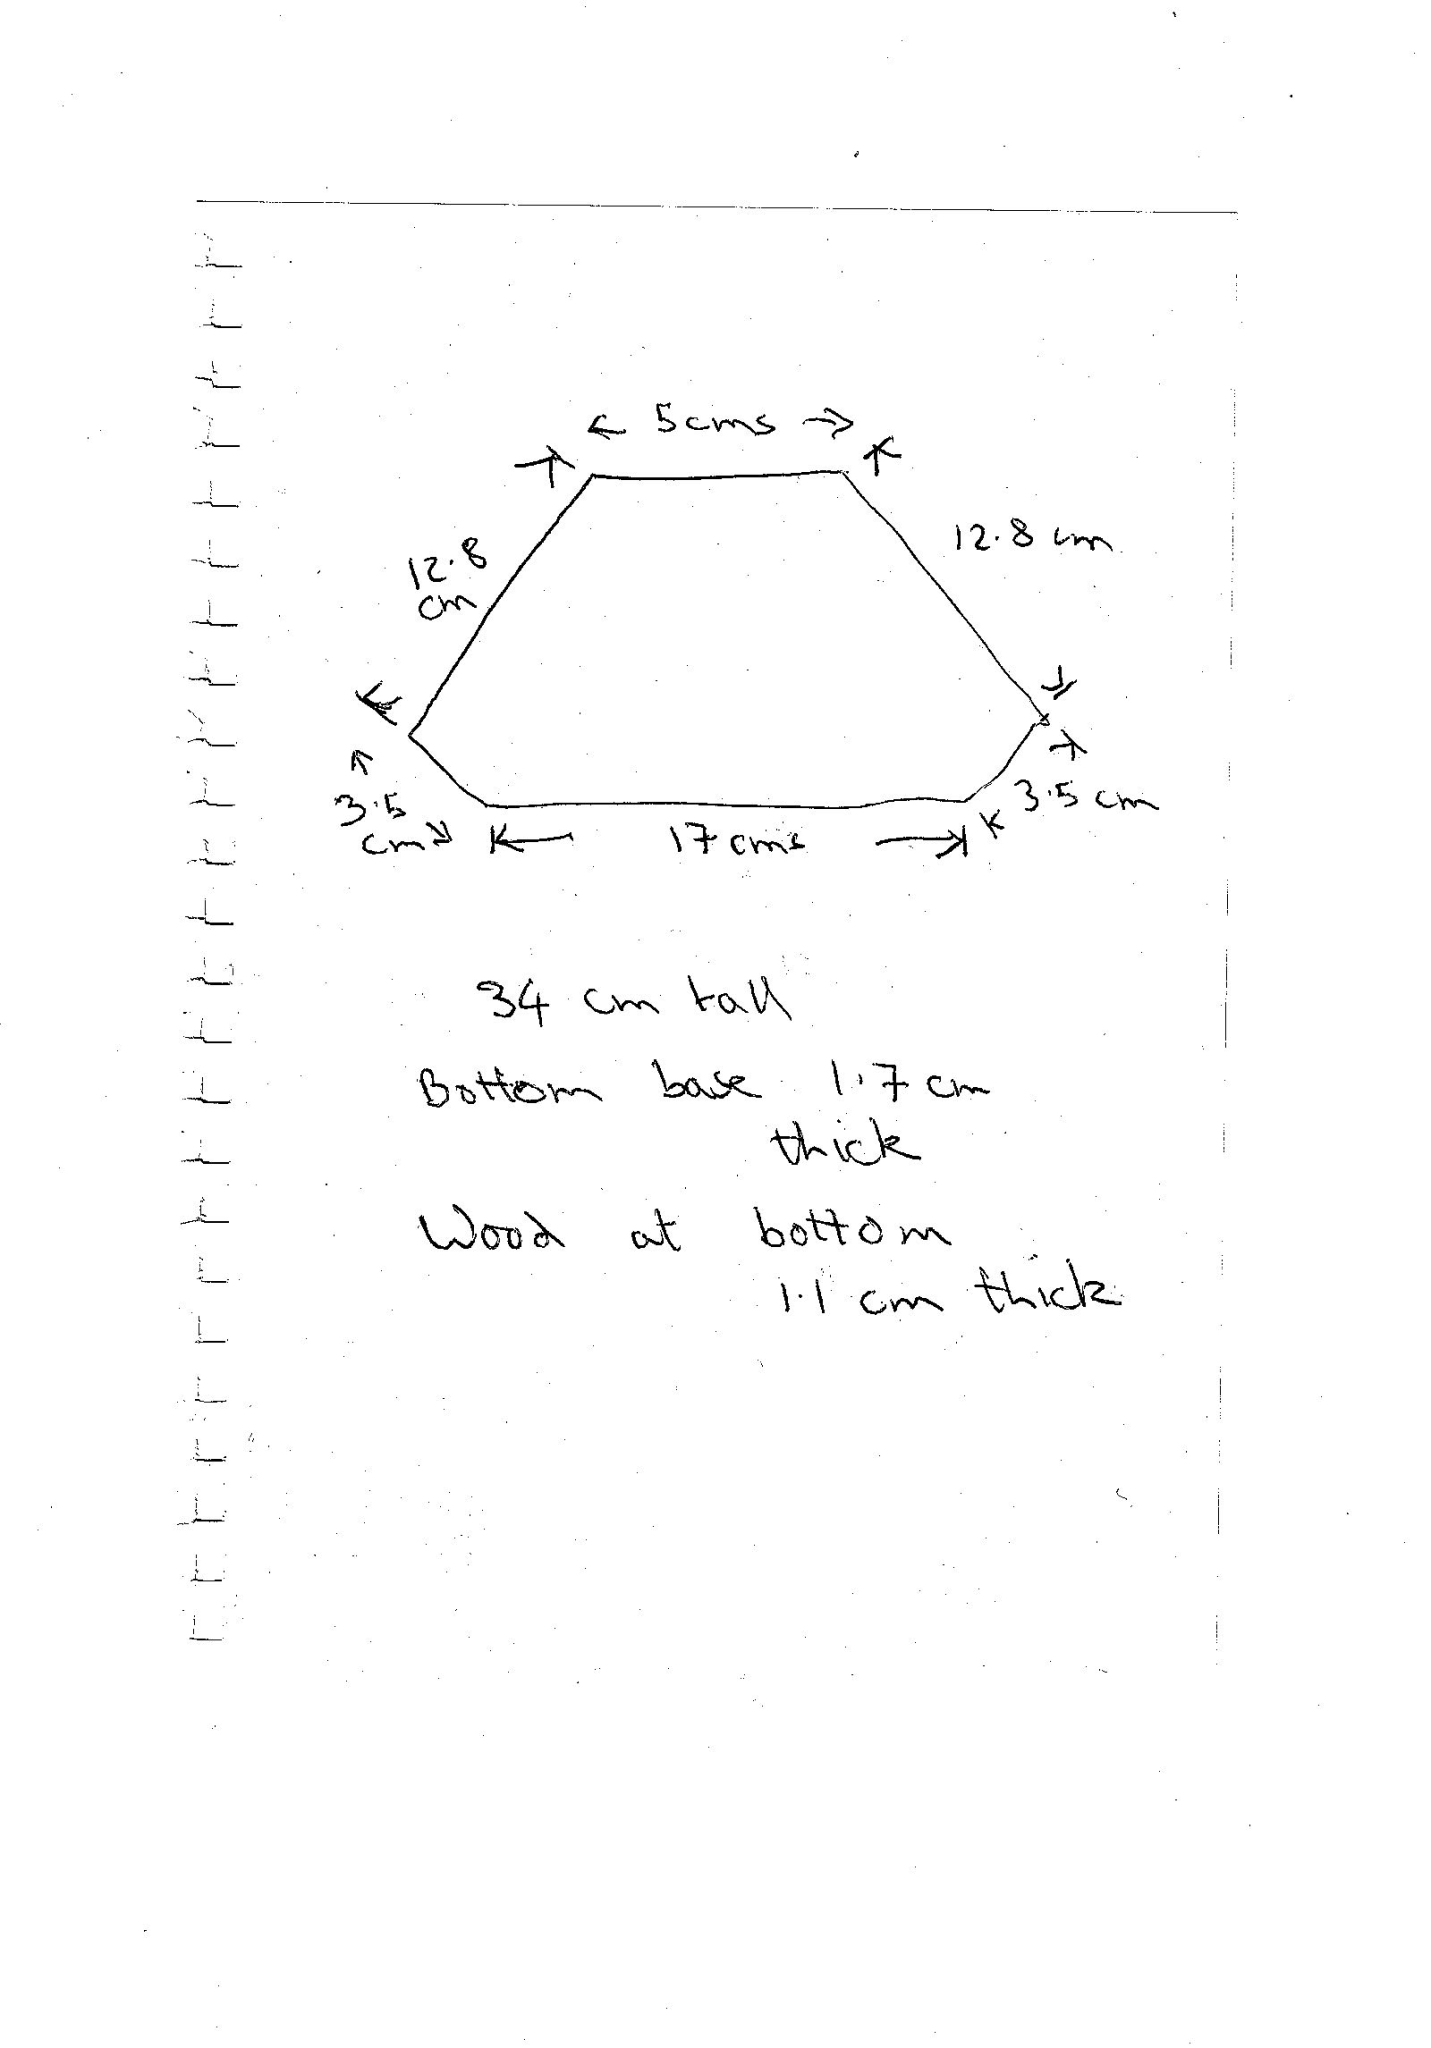 5 cms
12.8 cm
12.8
cm
3.5
cm
3.5 cm
17 cms
34 cm tall
Bottom base 1.7 cm
thick
Wood at bottom
1.1 cm thick